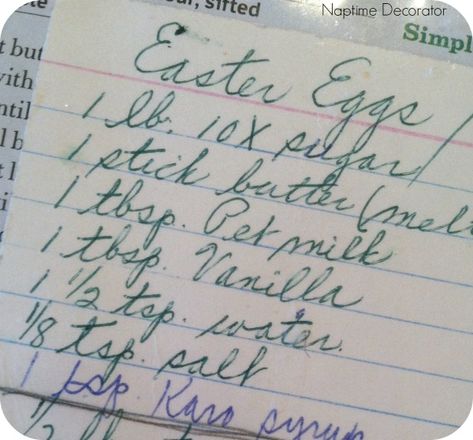 Naptime Decorator
sifted
Simpl
t but
with
ntil
Easter Eggs
1 lb. 10X sugar
1 stick butter (melt
1 tbsp. Pet milk
1 tbsp. Vanilla
1 1/2 tsp. water.
1/8 tsp. salt
1 tsp. Karo syrup
1/2